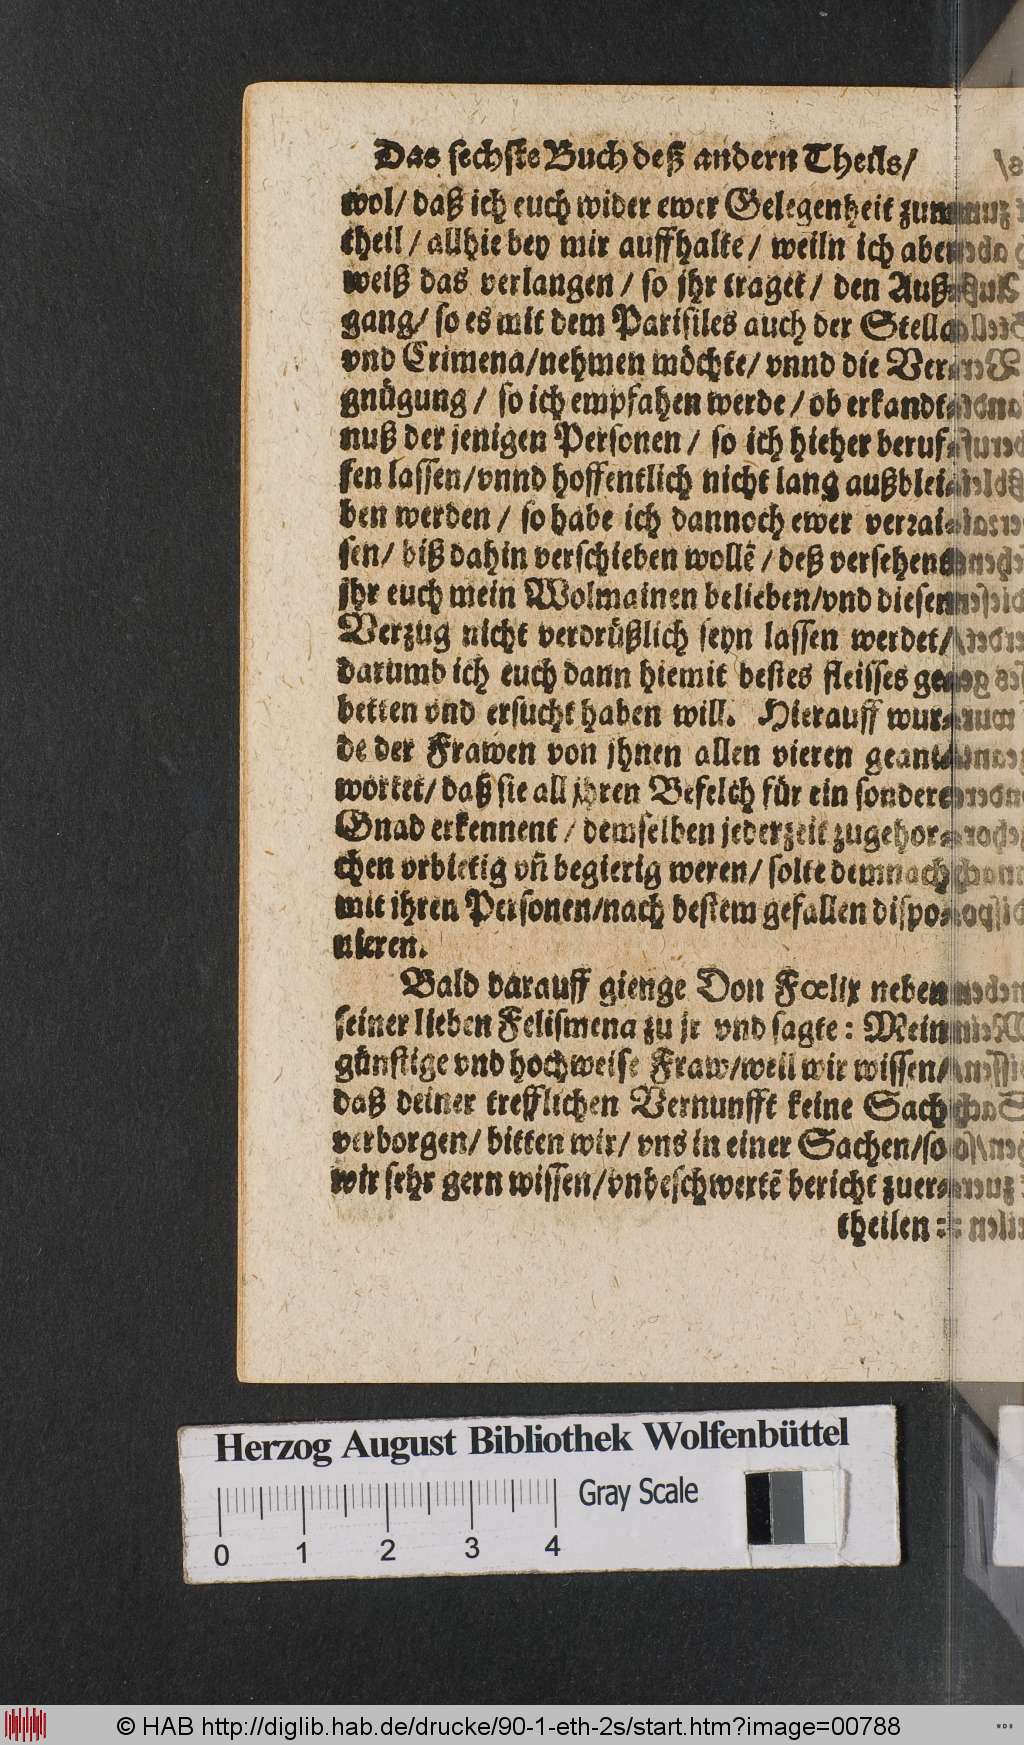 Das sechste Buch deß andern Theils/
wol/ daß ich euch wider ewer Gelegenheit zum
theil / allhie bey mir auffhalte / weiln ich aber
weiß das verlangen / so jhr traget / den Auß-
gang/ so es mit dem Parisiles auch der Stella
vnd Crimena/nehmen möchte/ vnnd die Ver-
gnügung / so ich empfahen werde / ob erkandt-
nuß der jenigen Personen / so ich hieher beruf-
fen lassen/vnnd hoffentlich nicht lang außblei-
ben werden / so habe ich dannoch ewer verrai-
sen/ biß dahin verschieben wollẽ / deß versehens
jhr euch mein Wolmainen belieben/vnd diesen
Verzug nicht verdrüßlich seyn lassen werdet/
darumb ich euch dann hiemit bestes fleisses ge-
betten vnd ersucht haben will. Hierauff wur-
de der Frawen von jhnen allen vieren geant-
wortet/ daß sie all jhren Befelch für ein sondere
Gnad erkennent / demselben jederzeit zugehor-
chen vrbietig vñ begierig weren/ solte demnach
mit ihren Personen/nach bestem gefallen dispo-
nieren.
Bald darauff gienge Don Fœlix neben
seiner lieben Felismena zu jr vnd sagte : Mein
günstige vnd hochweise Fraw/weil wir wissen/
daß deiner trefflichen Vernunfft keine Sach
verborgen/ bitten wir/ vns in einer Sachen/so
wir sehr gern wissen/vnbeschwertẽ bericht zuer-
theilen :
Herzog August Bibliothek Wolfenbüttel
Gray Scale
0 1 2 3 4
© HAB http://diglib.hab.de/drucke/90-1-eth-2s/start.htm?image=00788